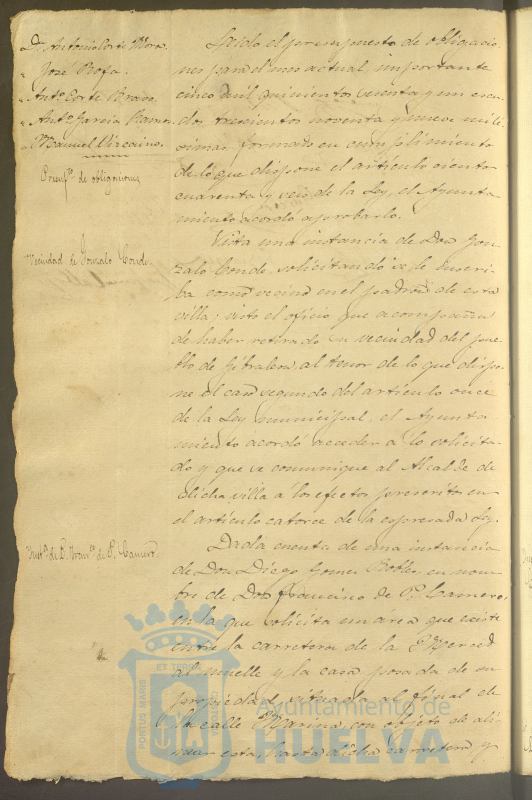 D. Antonio Corte Mora.
José Rofa.
" Antº Corte Bravo.
" Antº García Ramos.
" Manuel Vizcaino.
Presupto de obligaciones
Leido el presupuesto de obligacio-
nes para el mes actual, importante
cinco mil quinientos y un escu-
dos trescientos noventa y nueve mile-
simas formado en cumplimiento
de lo que dispone el artículo ciento
cuarenta y seis de la Ley, el Ayunta-
miento acordó aprobarlo.
Vecindad de Gonzalo Conde
Vista una instancia de Don Gon-
zalo Conde, solicitando se le inscri-
ba como vecino en el padron de esta
villa; visto el oficio que acompaña
de haber retirado su vecindad del pue-
blo de Gibraleon al tenor de lo que dispo-
ne el caso segundo del artículo once
de la Ley municipal, el Ayunta-
miento acordó acceder a lo solicita-
do y que se comunique al Alcalde de
dicha villa a los efectos prescritos en
el artículo catorce de la espresada Ley.
de D. Franco de P. Carrero
Dada cuenta de una instancia
de Don Diego Gomez Robles en nom-
bre de Don Francisco de P. Carrero
en la que solicita un área que existe
entre la carretera de la Merced
al muelle y la casa posada de su
propiedad situada al final de
la calle Marina, con objeto de ali-
near esta hasta dicha carretera, y
PORTUS MARIS
ET TERRAE
Ayuntamiento de
HUELVA